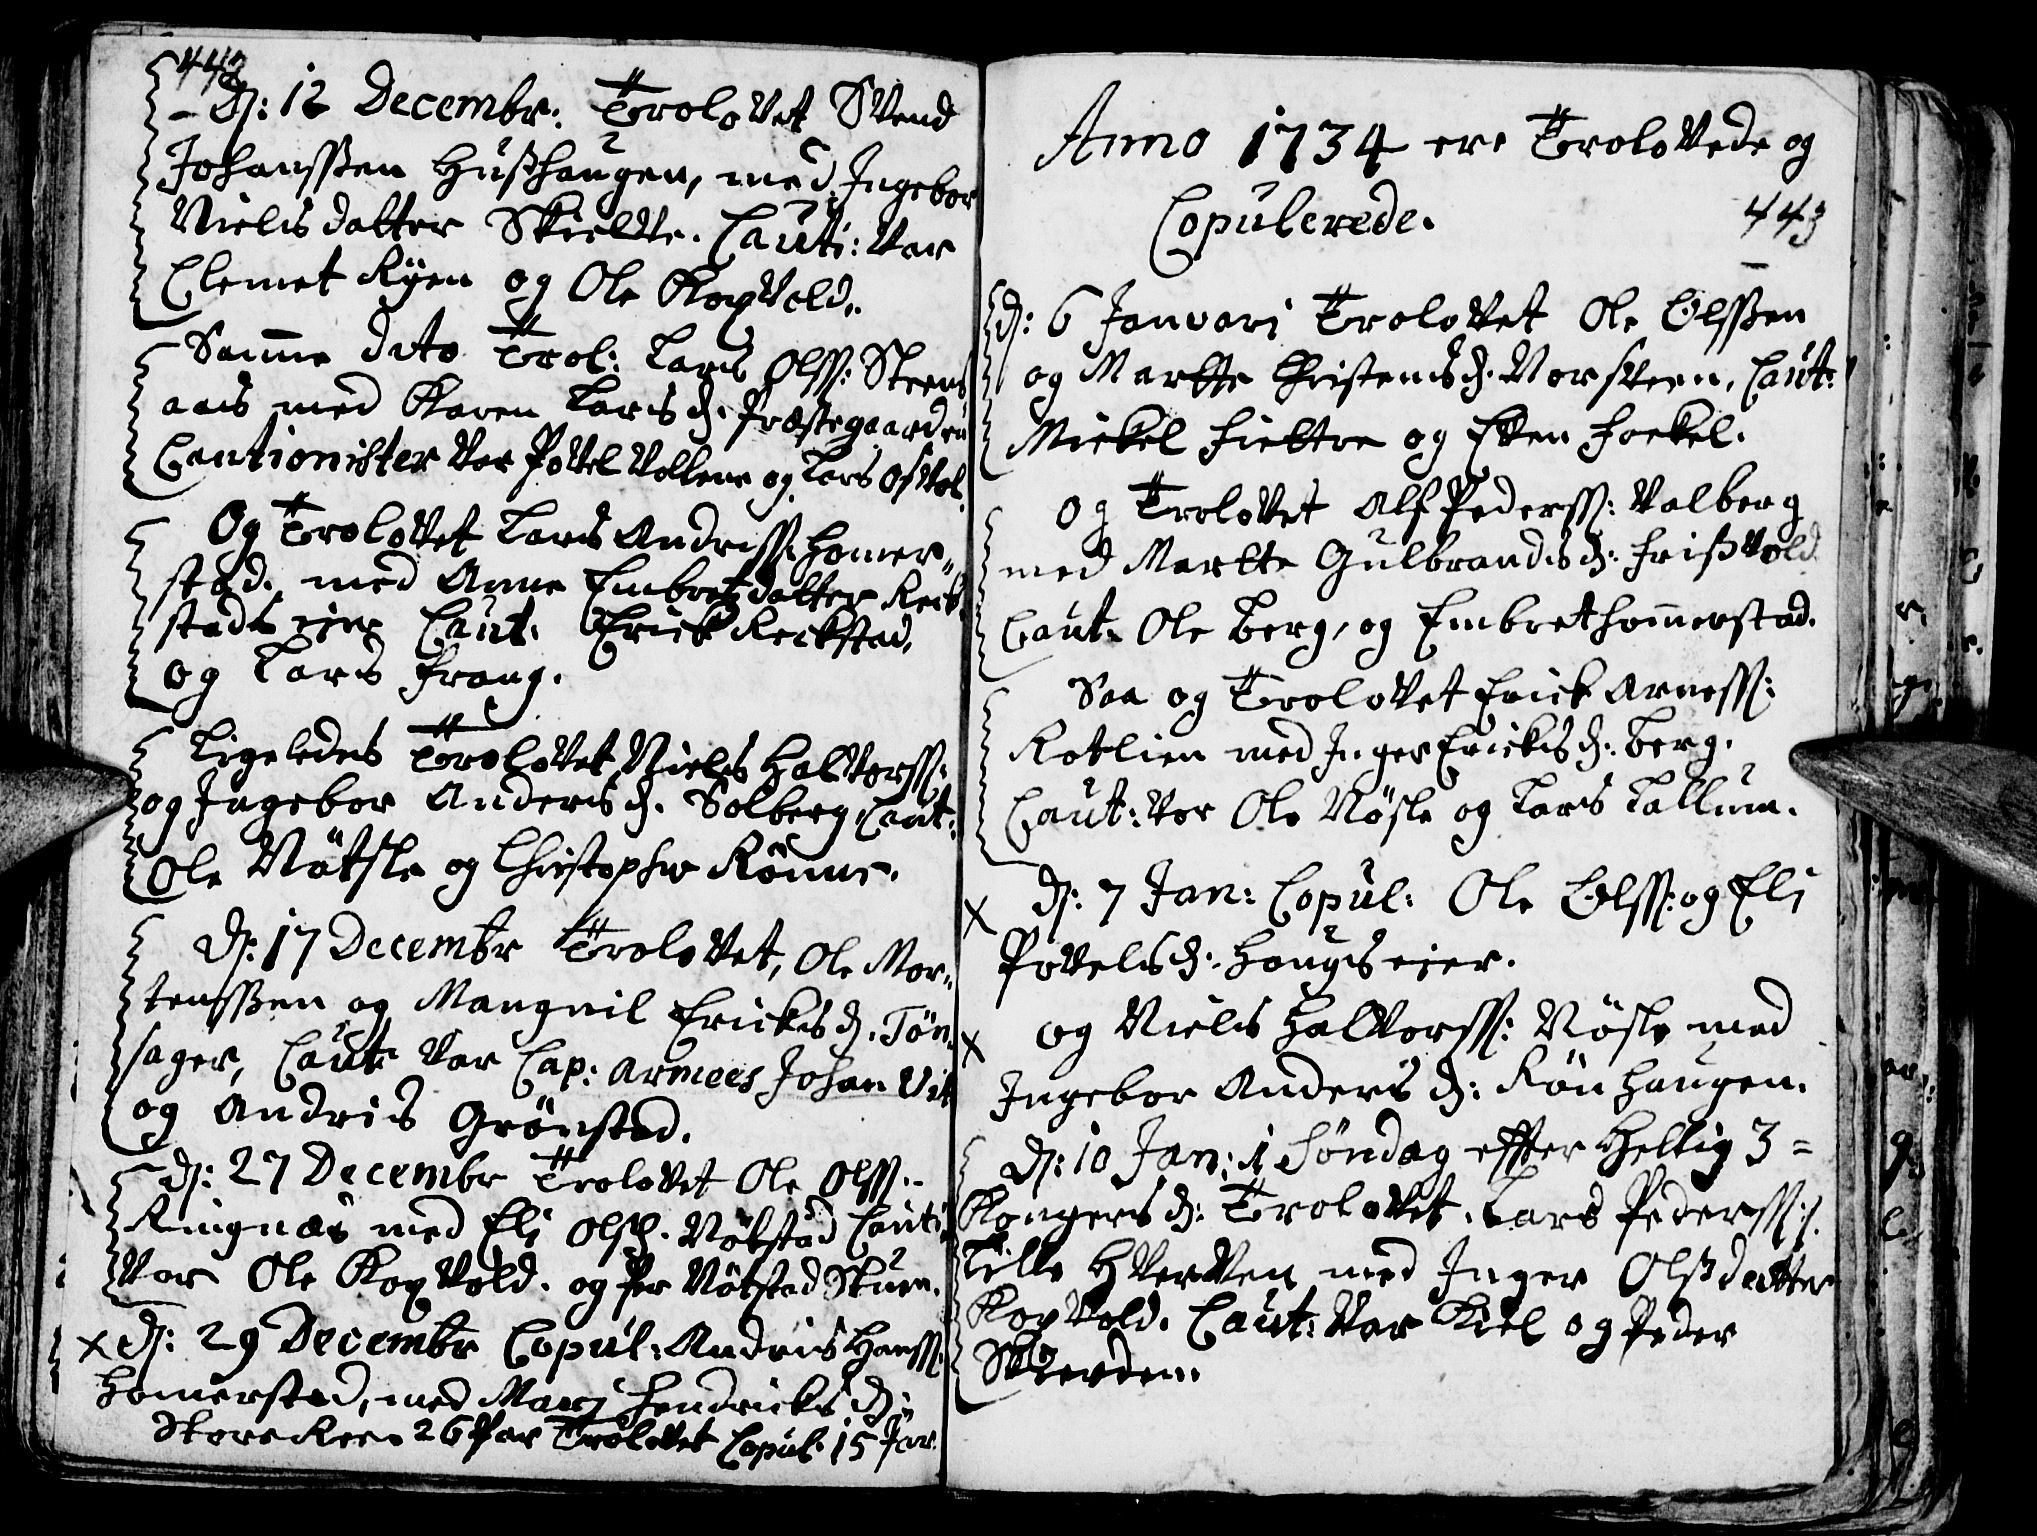 442
D: 12 Decembr: Trolovet Svend
Johanssen Hushaugen, med Ingebor
Nielsdatter Skielde. Cauti: var
Clemet Ryen og Ole Kopvold.
Samme dato Trol: Lars Olss: Steens
aas med Karen Larsd. Præstegaarden
Cautionister var Povel Vollene og Lars
Og Trolovet Lars Andriss: Homer„
stad. med Anne Embretsdatter Reck„
stads eier Caut. Erick Reckstad,
og Lars Frang.
Ligeledes Trolovet Niels Halvorss:
og Ingebor Andersd. Solberg, Caut:
Ole Nötsle og Christopher Rönne.
D: 17 Decembr Trolovet, Ole Mor„
tenssen og Mangnil Ericksd. Tön„
sager, Caut: var Cap: armees Johan Vit
og Andris Grönstad.
D: 27 Decembr Trolovet Ole Olss:
Ringnæs med Eli Olsd. Nötstad Cauti:
var Ole Kopvold. og Per Nötstad Stuen.
x D: 29 Decembr Copul: Andris Hanss:
Homerstad, med Mari Hendricksd:
Store Ree. 26 Par Trolovet Copul. 15 Par.
Anno 1734 ere Trolovede og
Copulerede.
443
D: 6 Januari Trolovet Ole Olssen
og Martte Christensd. Norsveen, Caut:
Mickel Fieltre og Even Fockel.
Og Trolovet Alf Pederss: Valberg
med Martte Gulbrandsd: Frisvold
Caut: Ole Berg, og Embret Homerstad.
Saa og Trolovet Erick Arness:
Rotlien med Inger Ericksd: Berg.
Caut: var Ole Nösle og Lars Lallum.
x D: 7 Jan: Copul: Ole Olss: og Eli
Povelsd: Haugs eier.
x og Niels Halvorss: Nösle med
Ingebor Andersd: Rönhaugen.
D: 10 Jan: 1 Söndag efter Hellig 3 =
Kongersd: Trolovet. Lars Pederss:
Lille Hverven med Inger Olsdatter
Kopvold. Caut: var Kiel og Peder